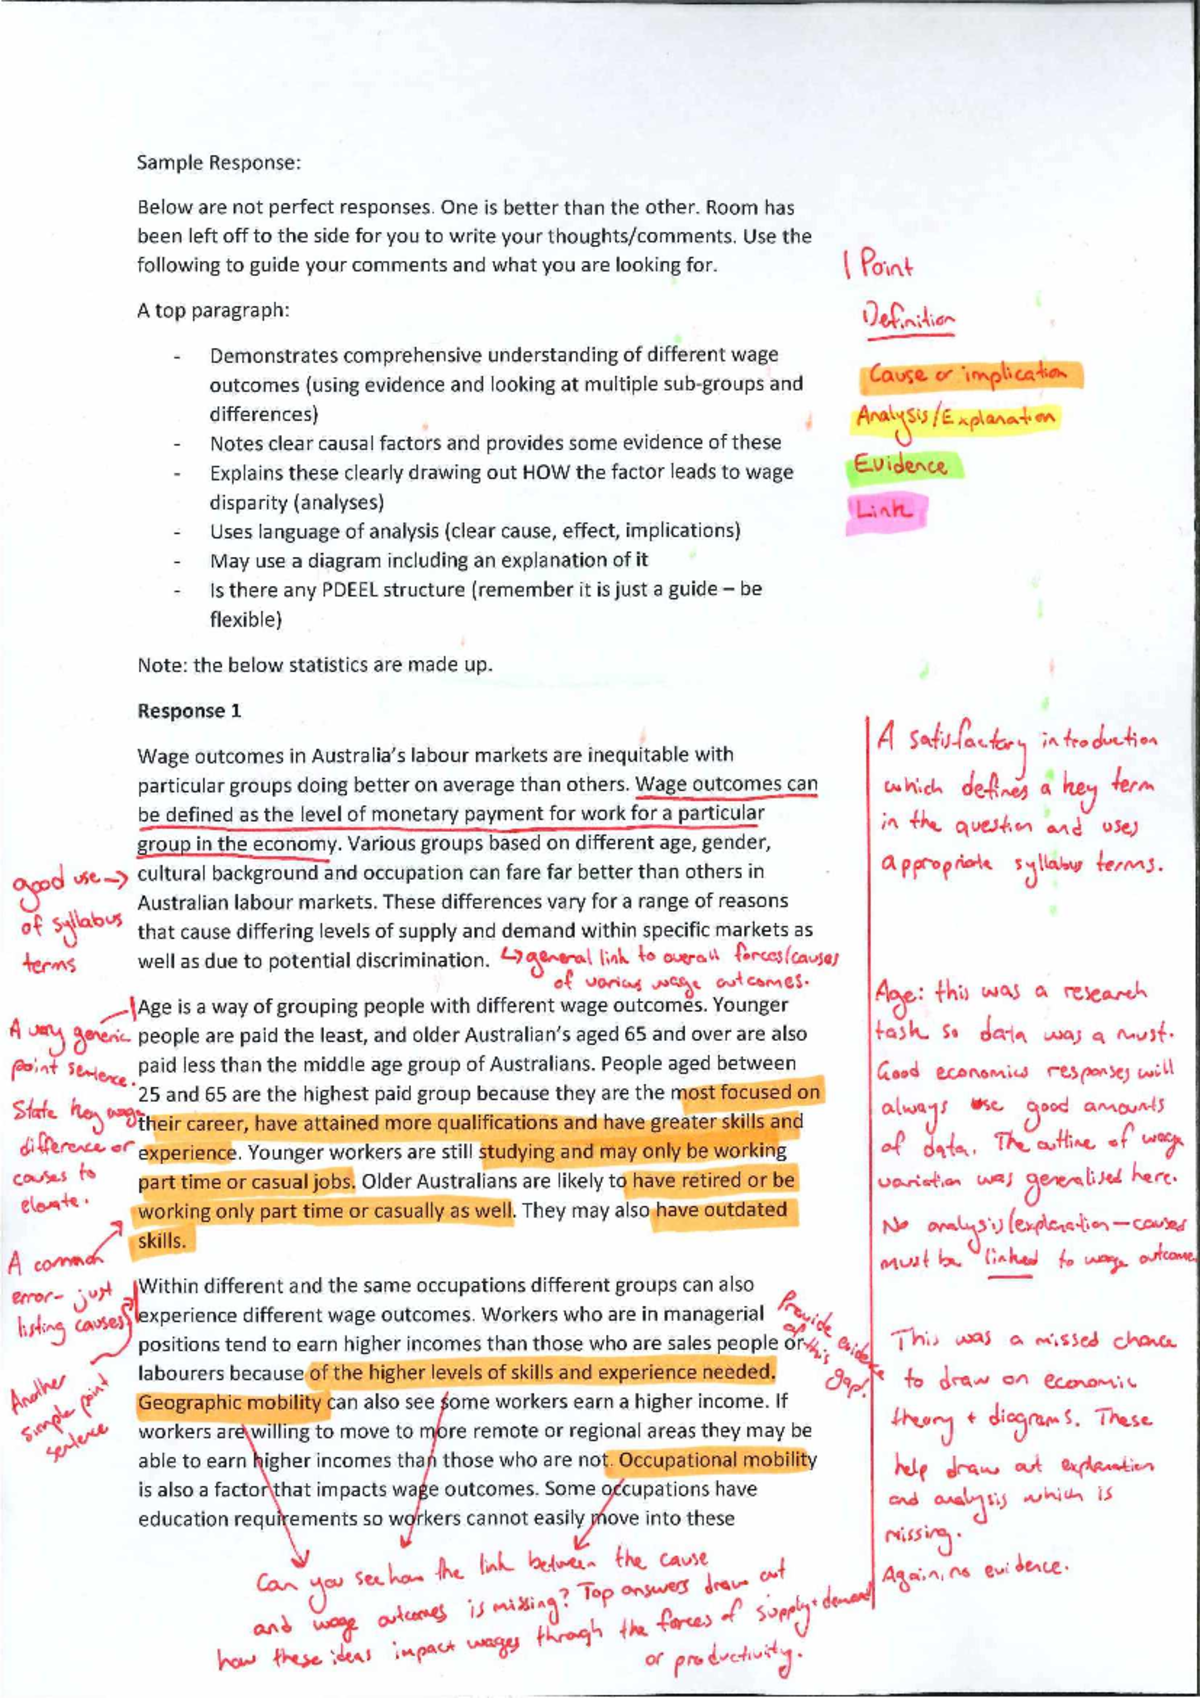 Sample Response:
Below are not perfect responses. One is better than the other. Room has
been left off to the side for you to write your thoughts/comments. Use the
following to guide your comments and what you are looking for.
A top paragraph:
- Demonstrates comprehensive understanding of different wage
outcomes (using evidence and looking at multiple sub-groups and
differences)
- Notes clear causal factors and provides some evidence of these
- Explains these clearly drawing out HOW the factor leads to wage
disparity (analyses)
- Uses language of analysis (clear cause, effect, implications)
- May use a diagram including an explanation of it
- Is there any PDEEL structure (remember it is just a guide – be
flexible)
Note: the below statistics are made up.
Point
Definition
Cause or implication
Analysis/Explanation
Evidence
Link
Response 1
Wage outcomes in Australia's labour markets are inequitable with
particular groups doing better on average than others. Wage outcomes can
be defined as the level of monetary payment for work for a particular
group in the economy. Various groups based on different age, gender,
cultural background and occupation can fare far better than others in
Australian labour markets. These differences vary for a range of reasons
that cause differing levels of supply and demand within specific markets as
well as due to potential discrimination.
↳ general link to overall forces/causes
of various wage outcomes.
good use →
of syllabus
terms
A satisfactory introduction
which defines a key term
in the question and uses
appropriate syllabus terms.
Age is a way of grouping people with different wage outcomes. Younger
people are paid the least, and older Australian's aged 65 and over are also
paid less than the middle age group of Australians. People aged between
25 and 65 are the highest paid group because they are the most focused on
their career, have attained more qualifications and have greater skills and
experience. Younger workers are still studying and may only be working
part time or casual jobs. Older Australians are likely to have retired or be
working only part time or casually as well. They may also have outdated
skills.
A very generic
point sentence.
State key wage
difference or
causes to
elevate.
A common
error- just
listing causes
Age: this was a research
task so data was a must.
Good economics responses will
always use good amounts
of data. The outline of wage
variation was generalised here.
No analysis/explanation – causes
must be linked to wage outcome
Within different and the same occupations different groups can also
experience different wage outcomes. Workers who are in managerial
positions tend to earn higher incomes than those who are sales people or
labourers because of the higher levels of skills and experience needed.
Geographic mobility can also see some workers earn a higher income. If
workers are willing to move to more remote or regional areas they may be
able to earn higher incomes than those who are not. Occupational mobility
is also a factor that impacts wage outcomes. Some occupations have
education requirements so workers cannot easily move into these
Another
simple point
sentence
Provide evidence
of this
gap!
This was a missed chance
to draw on economic
theory + diagrams. These
help draw out explanation
and analysis which is
missing.
Again, no evidence.
Can you see how the link between the cause
and wage outcomes is missing? Top answers draw out
how these ideas impact wages through the forces of supply + demand
or productivity.